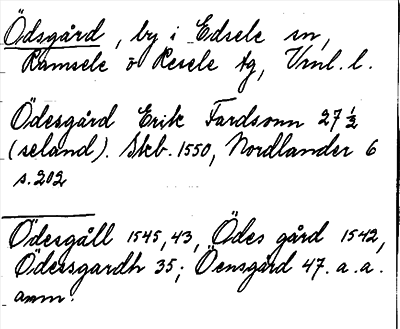 Ödsgård, by i Edsele sn,
Ramsele o Resele tg, Vnl. l.
Ödesgård Erik Fardsonn 27 ½
(seland). Skb. 1550, Nordlander 6
s. 202
Ödesgåll 1545, 43, Ödes gård 1542,
Ödessgardh 35; Öensgård 47. a. a.
anm.